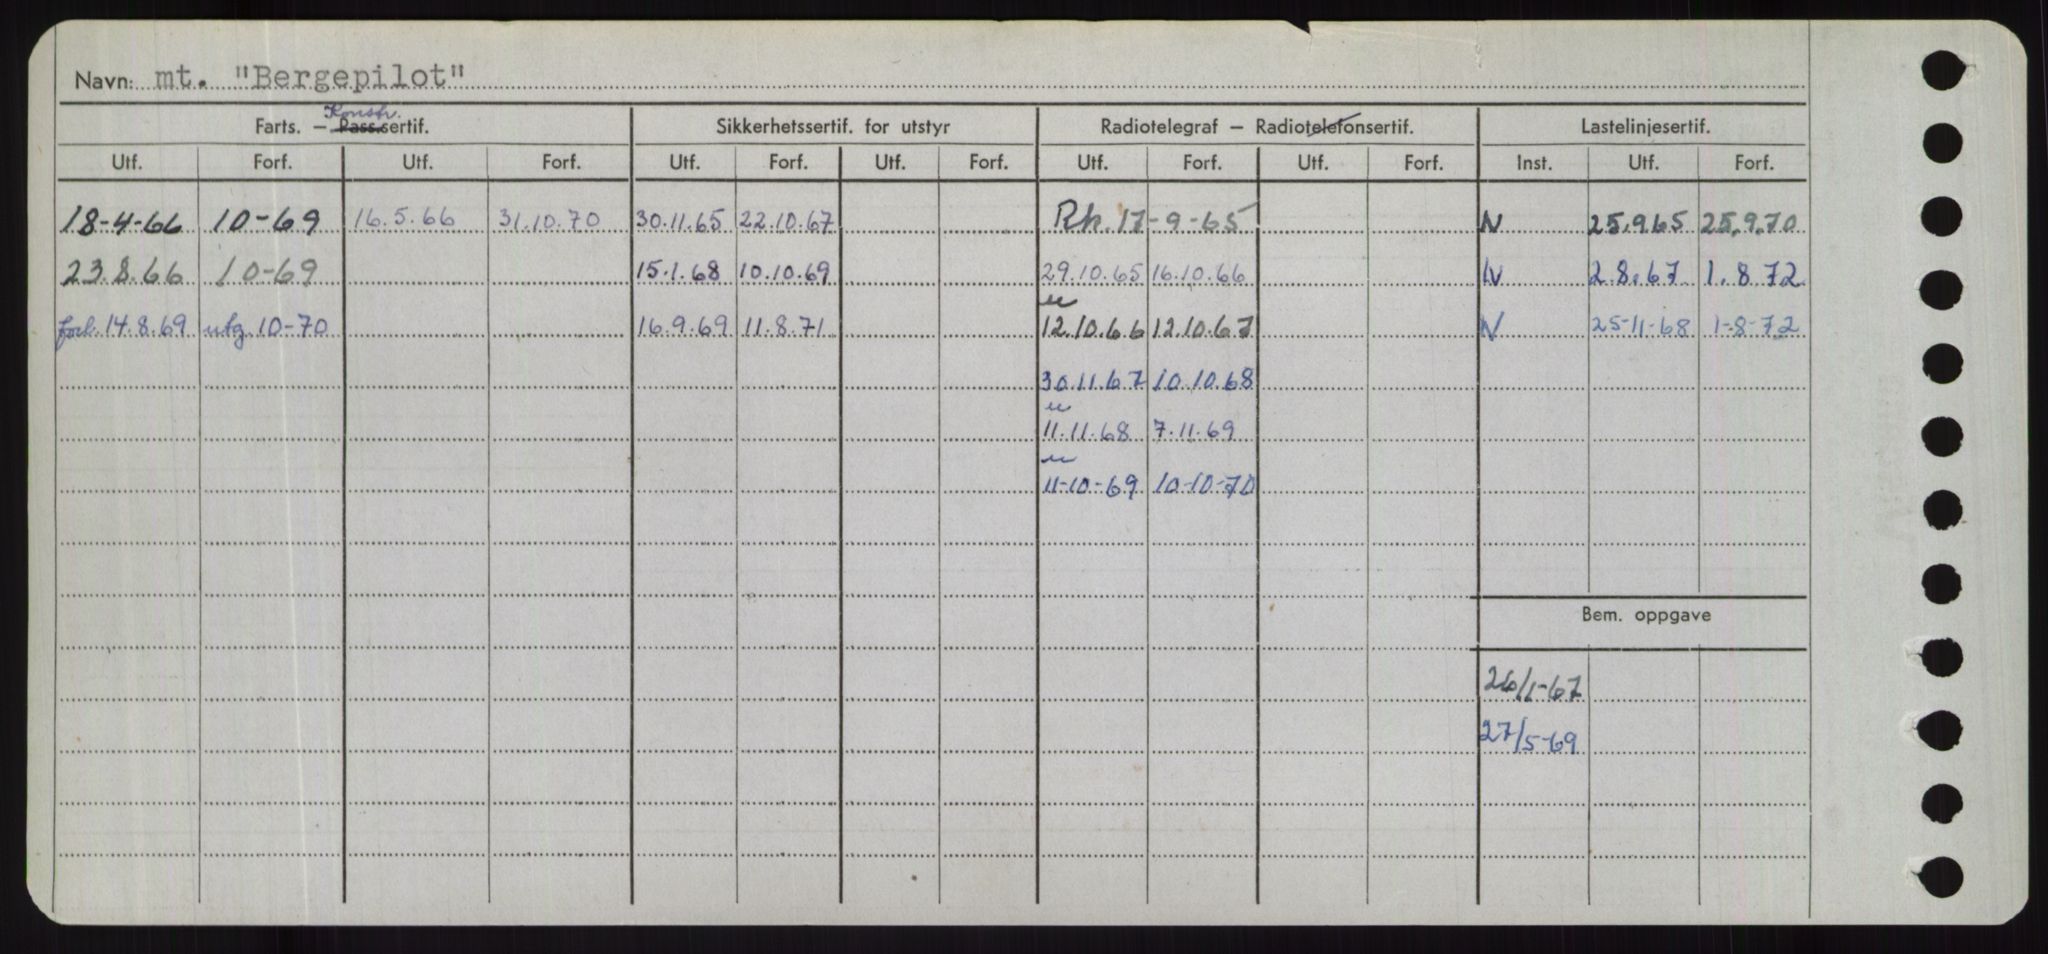 Navn: mt. "Bergepilot"
Konstr.
Farts. – Pass.sertif. Sikkerhetssertif. for utstyr Radiotelegraf – Radiotelefonsertif. Lastelinjesertif.
Utf. Forf. Utf. Forf. Utf. Forf. Utf. Forf. Utf. Forf. Utf. Forf. Inst. Utf. Forf.
18-4-66 10-69 16.5.66 31.10.70 30.11.65 22.10.67 Rk. 17-9-65 N 25.9.65 25.9.70
23.8.66 10-69 15.1.68 10.10.69 29.10.65 16.10.66 N 2.8.67 1.8.72
forl. 14.8.69 utg. 10-70 16.9.69 11.8.71 12.10.66 12.10.67 N 25-11-68 1-8-72
30.11.67 10.10.68
11.11.68 7.11.69
11-10-69 10-10-70
Bem. oppgave
26/1-67
27/5-69